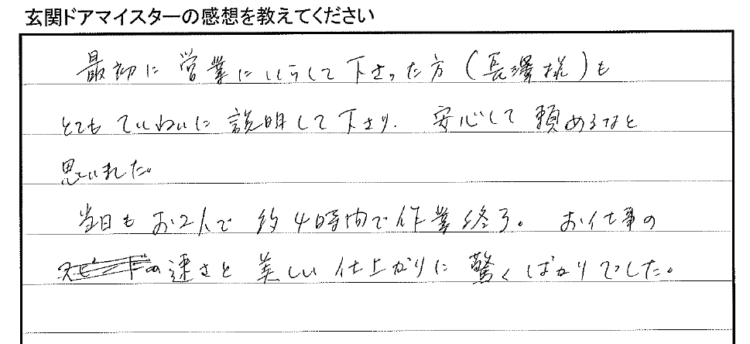 玄関ドアマイスターの感想を教えてください
最初に営業にいらして下さった方(長澤様)も
とてもていねいに説明して下さり、安心して頼めるなと
思いました。
当日もお2人で約4時間で作業終了。お仕事の
速さと美しい仕上がりに驚くばかりでした。